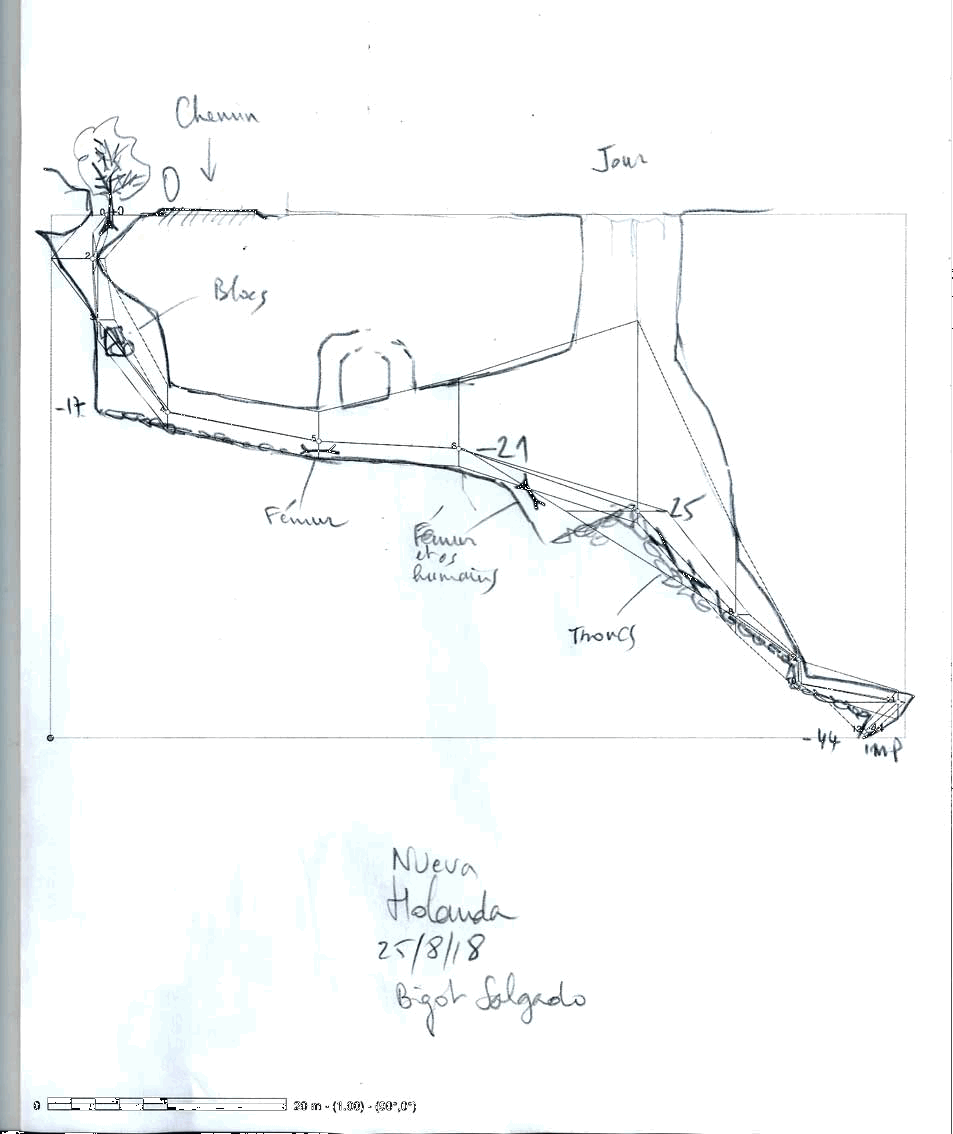 Chemin
Jour
0
Blocs
-17
-21
25
Fémur
Fémur
et os
humains
Troncs
-44
imp
Nueva
Holanda
25/8/18
Bigot Salgado
0 20 m - (1.00) - (90°,0°)